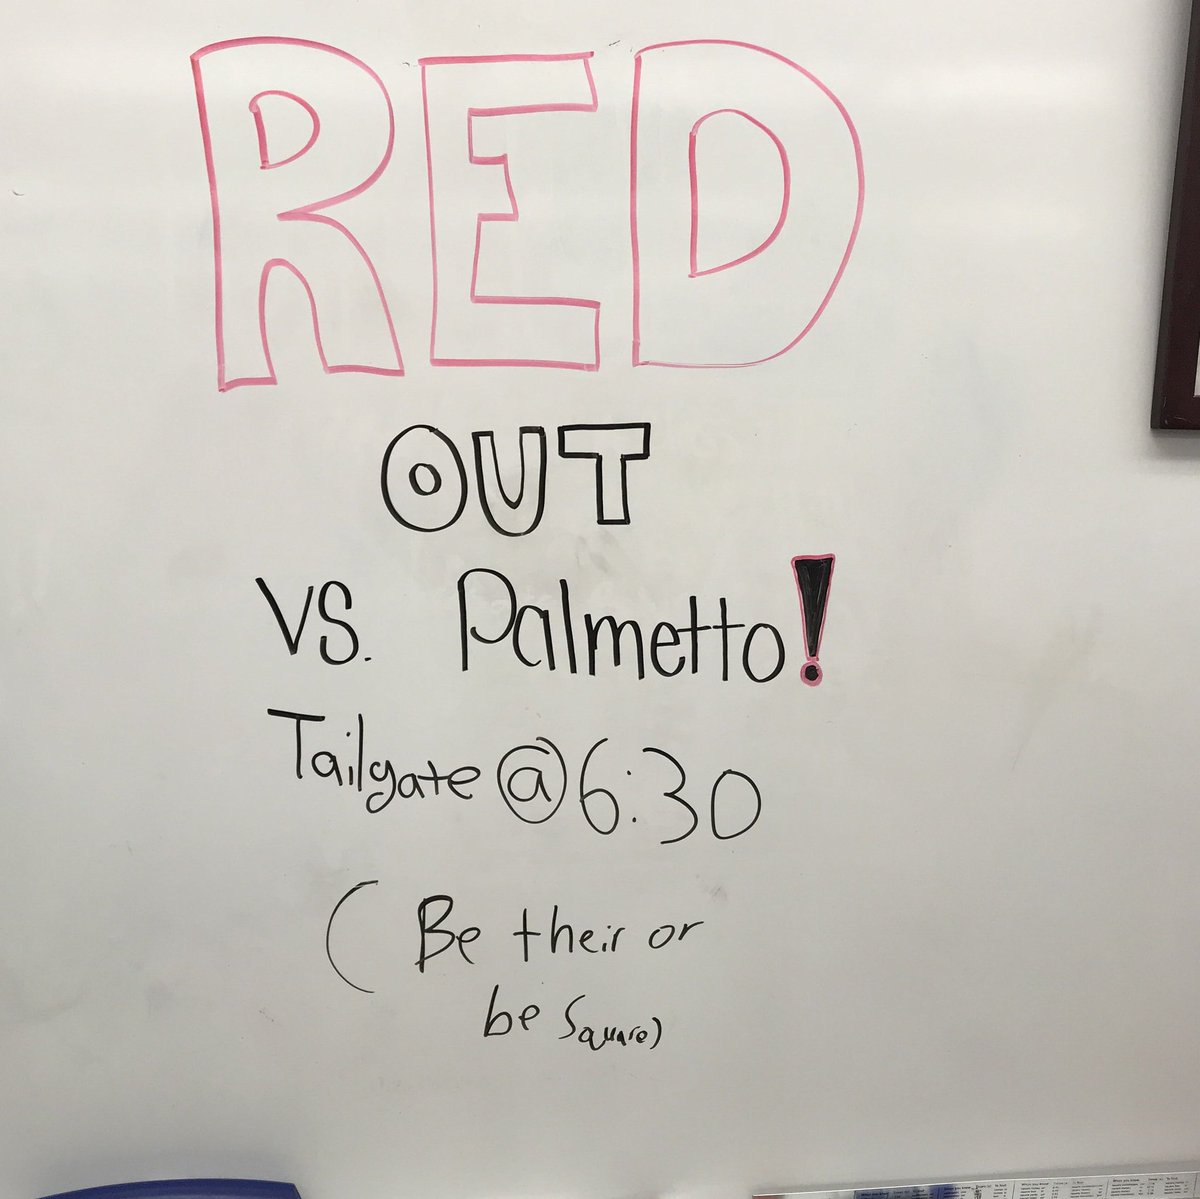 RED
OUT
VS. Palmetto!
Tailgate @ 6:30
(Be their or
be Square)